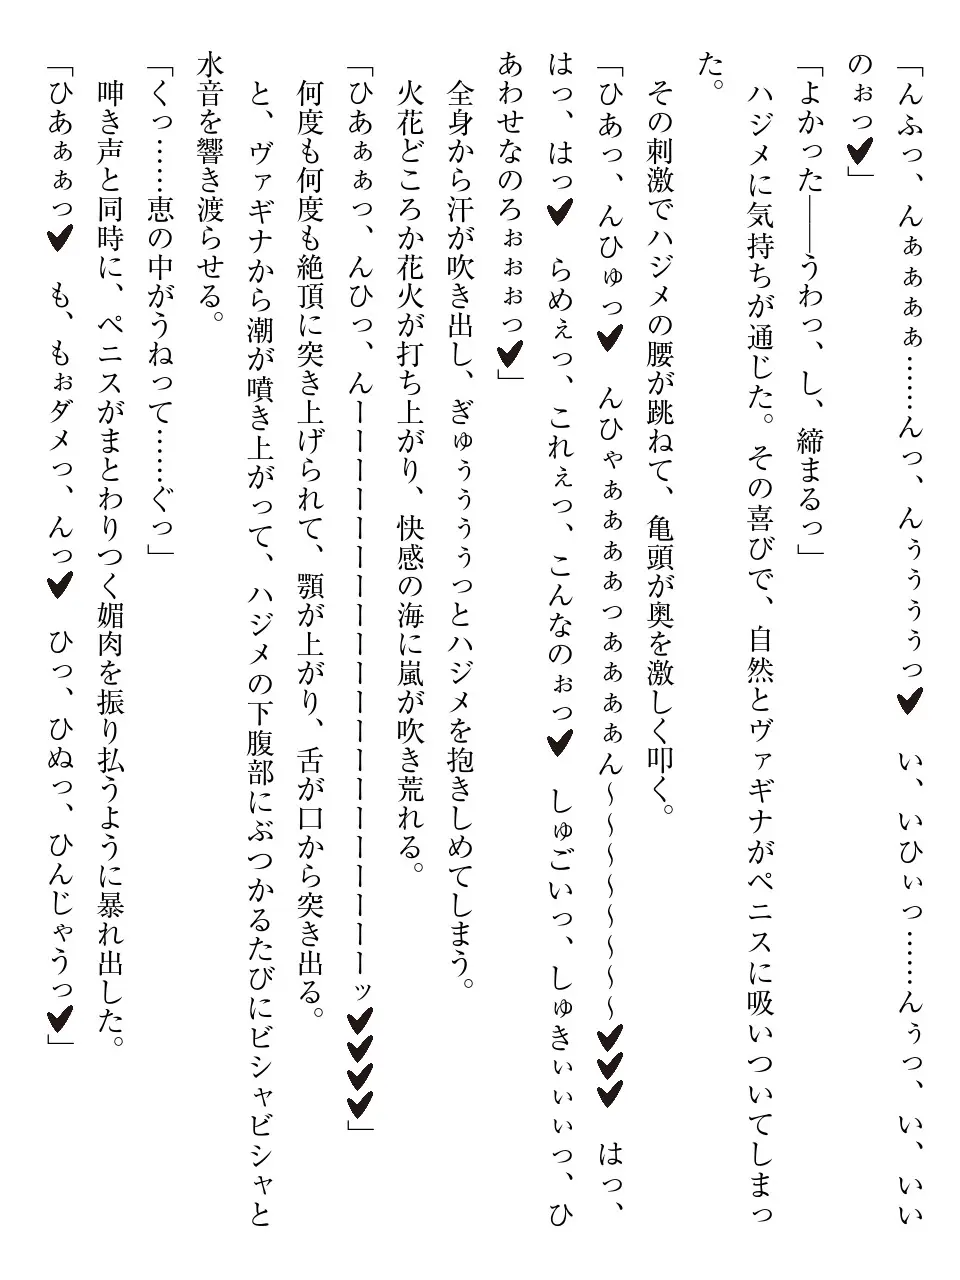 「んふっ、んぁぁぁぁ……んっ、んぅぅぅぅっ♥　い、いひぃっ……んぅっ、い、いい
のぉっ♥」
「よかった――うわっ、し、締まるっ」
　ハジメに気持ちが通じた。その喜びで、自然とヴァギナがペニスに吸いついてしまっ
た。
　その刺激でハジメの腰が跳ねて、亀頭が奥を激しく叩く。
「ひあっ、んひゅっ♥　んひゃぁぁぁぁっぁぁぁぁん～～～～～～～～♥♥♥　はっ、
はっ、はっ♥　らめぇっ、これぇっ、こんなのぉっ♥　しゅごいっ、しゅきぃぃぃっ、ひ
あわせなのろぉぉぉっ♥」
　全身から汗が吹き出し、ぎゅぅぅぅぅっとハジメを抱きしめてしまう。
　火花どころか花火が打ち上がり、快感の海に嵐が吹き荒れる。
「ひあぁぁっ、んひっ、んーーーーーーーーーーーーーーーーーーーーッ♥♥♥♥」
　何度も何度も絶頂に突き上げられて、顎が上がり、舌が口から突き出る。
　と、ヴァギナから潮が噴き上がって、ハジメの下腹部にぶつかるたびにビシャビシャと
水音を響き渡らせる。
「くっ……恵の中がうねって……ぐっ」
　呻き声と同時に、ペニスがまとわりつく媚肉を振り払うように暴れ出した。
「ひあぁぁっ♥　も、もぉダメっ、んっ♥　ひっ、ひぬっ、ひんじゃうっ♥」